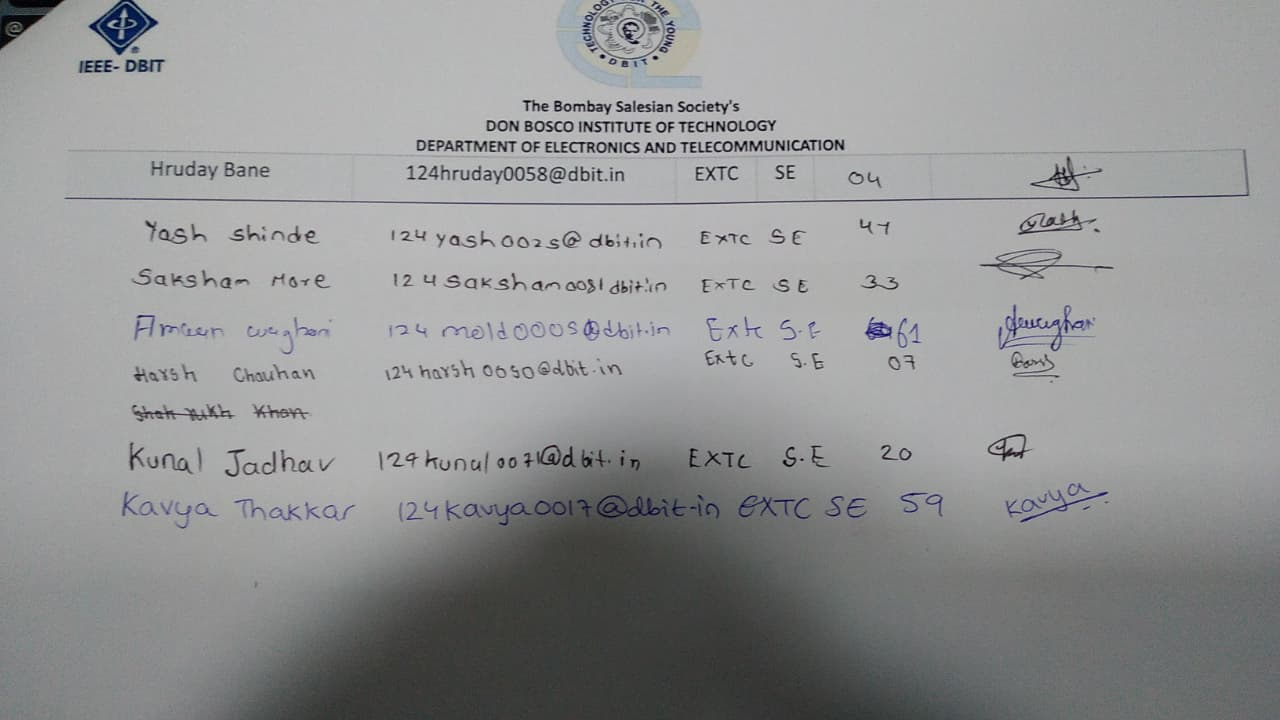 IEEE- DBIT
TECHNOLOGY THE YOUNG
DBIT
The Bombay Salesian Society's
DON BOSCO INSTITUTE OF TECHNOLOGY
DEPARTMENT OF ELECTRONICS AND TELECOMMUNICATION
Hruday Bane 124hruday0058@dbit.in EXTC SE 04
Yash Shinde 124yash0025@dbit.in EXTC SE 47 Yash
Saksham More 124saksham0081dbit.in EXTC SE 33
Ameen 124mold0005@dbit.in Extc S.E 61
Harsh Chauhan 124harsh0050@dbit.in Extc S.E 07
Shah rukh Khan
Kunal Jadhav 124kunal0071@dbit.in EXTC S.E 20
Kavya Thakkar 124kavya0017@dbit.in EXTC SE 59 Kavya